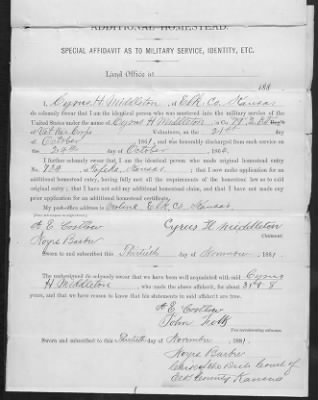 ADDITIONAL HOMESTEAD.
SPECIAL AFFIDAVIT AS TO MILITARY SERVICE, IDENTITY, ETC.
Land Office at
188
I, Cyrus H. Middleton, of Elk Co. Kansas
do solemnly swear that I am the identical person who was mustered into the military service of the
United States under the name of Cyrus H Middleton, in Co
of Vet Res Corps Volunteers, on the 21st day
of October 1861, and was honorably discharged from such service on
the 24th day of October, 186
I further solemnly swear that I am the identical person who made original homestead entry
No. at Topeka Kansas; that I now make application for an
additional homestead entry, having fully met all the requirements of the homestead law as to said
original entry; that I have not sold any additional homestead claim, and that I have not made any
prior application for an additional homestead certificate.
My post-office address is Moline, Elk Co. Kansas.
A E Costlow
Cyrus H Middleton
Claimant.
Royce Barber
Sworn to and subscribed this Thirtieth day of November, 1881.
The undersigned do solemnly swear that we have been well acquainted with said Cyrus
H Middleton, who made the above affidavit, for about
years, and that we have reason to know that his statements in said affidavit are true.
A E Costlow
John
Two corroborating witnesses.
Sworn to and subscribed this Thirtieth day of November, 1881.
Royce Barber
Clerk of the Dist. Court of
Elk County Kansas